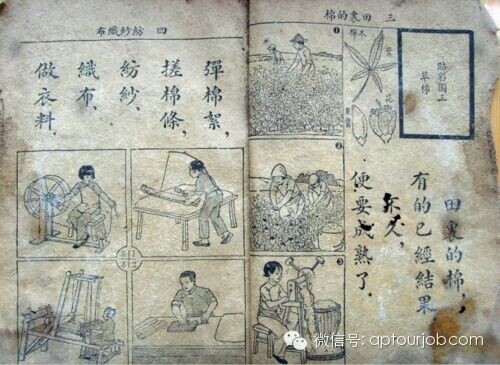 三 田裏的棉
貼彩圖三
草棉
葉
花
田裏的棉,
有的已經結果
不久,
便要成熟了.
1
2
3
四 紡紗織布
彈棉絮,
搓棉條,
紡紗,
織布,
做衣料.
微信号: aptourjob.com